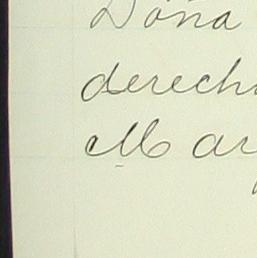 Doña
derech
Mar